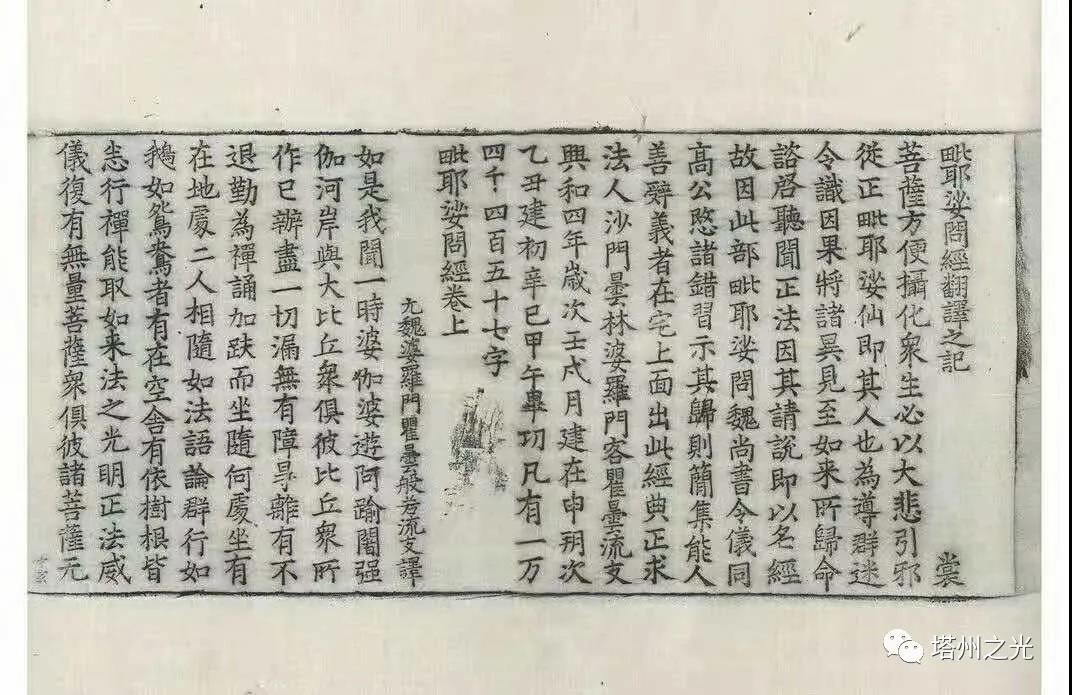 毗耶娑問經翻譯之記
裳
菩薩方便攝化衆生必以大悲引邪
從正毗耶娑仙即其人也為導群迷
令識因果將諸異見至如来所歸命
諮啓聽聞正法因其請說即以名經
故因此部毗耶娑問魏尚書令儀同
高公愍諸錯習示其歸則簡集能人
善辭義者在宅上面出此經典正求
法人沙門曇林婆羅門客瞿曇流支
興和四年歲次壬戌月建在申朔次
乙丑建初辛巳甲午畢功凡有一万
四千四百五十七字
毗耶娑問經卷上
元魏婆羅門瞿曇般若流支譯
如是我聞一時婆伽婆遊阿踰闍强
伽河岸與大比丘衆俱彼比丘衆所
作已辦盡一切漏無有障㝵離有不
退勤為禪誦加趺而坐隨何處坐有
在地處二人相隨如法語論群行如
鵝如鴛鴦者有在空舍有依樹根皆
悉行禪能取如来法之光明正法威
儀復有無量菩薩衆俱彼諸菩薩元
塔州之光